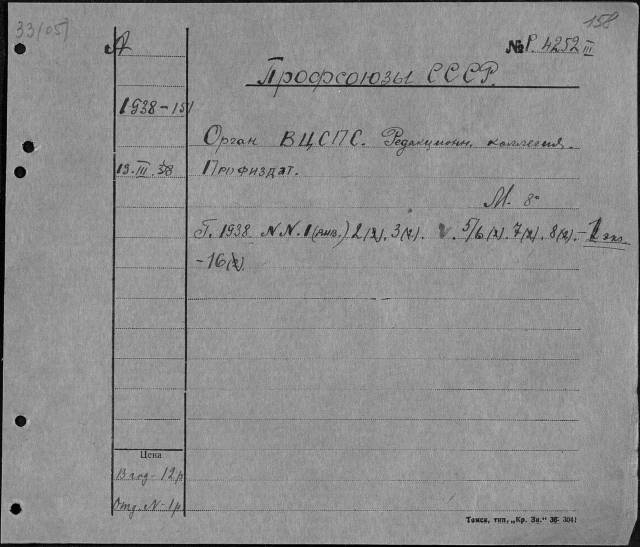 33(05)
158
А
№ Р. 4252 III
Профсоюзы СССР.
1938-151
Орган ВЦСПС. Редакционн. коллегия.
13. III. 38
Профиздат.
М. 8°
Г. 1938 N.N. 1 (янв.) 2(2), 3(2). 5/6(2). 7(2). 8(2). - 1 экз.
-16(2)
Цена
В год - 12 р
Отд. N - 1 р
Томск, тип. „Кр. Зн." 36- 3041